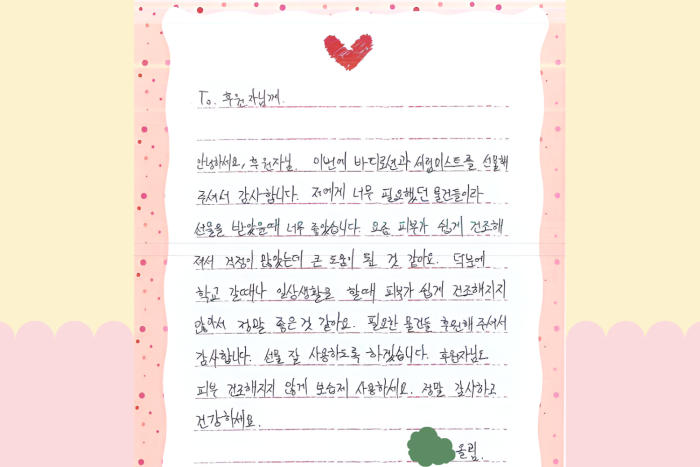 To. 후원자님께.
안녕하세요, 후원자님. 이번에 바디로션과 세럼미스트를 선물해
주셔서 감사합니다. 저에게 너무 필요했던 물건들이라
선물을 받았을때 너무 좋았습니다. 요즘 피부가 쉽게 건조해
져서 걱정이 많았는데 큰 도움이 될 것 같아요. 덕분에
학교 갈때나 일상생활을 할때 피부가 쉽게 건조해지지
않아서 정말 좋은것 같아요. 필요한 물건들 후원해 주셔서
감사합니다. 선물 잘 사용하도록 하겠습니다. 후원자님도
피부 건조해지지 않게 보습제 사용하세요. 정말 감사하고
건강하세요.
올림.